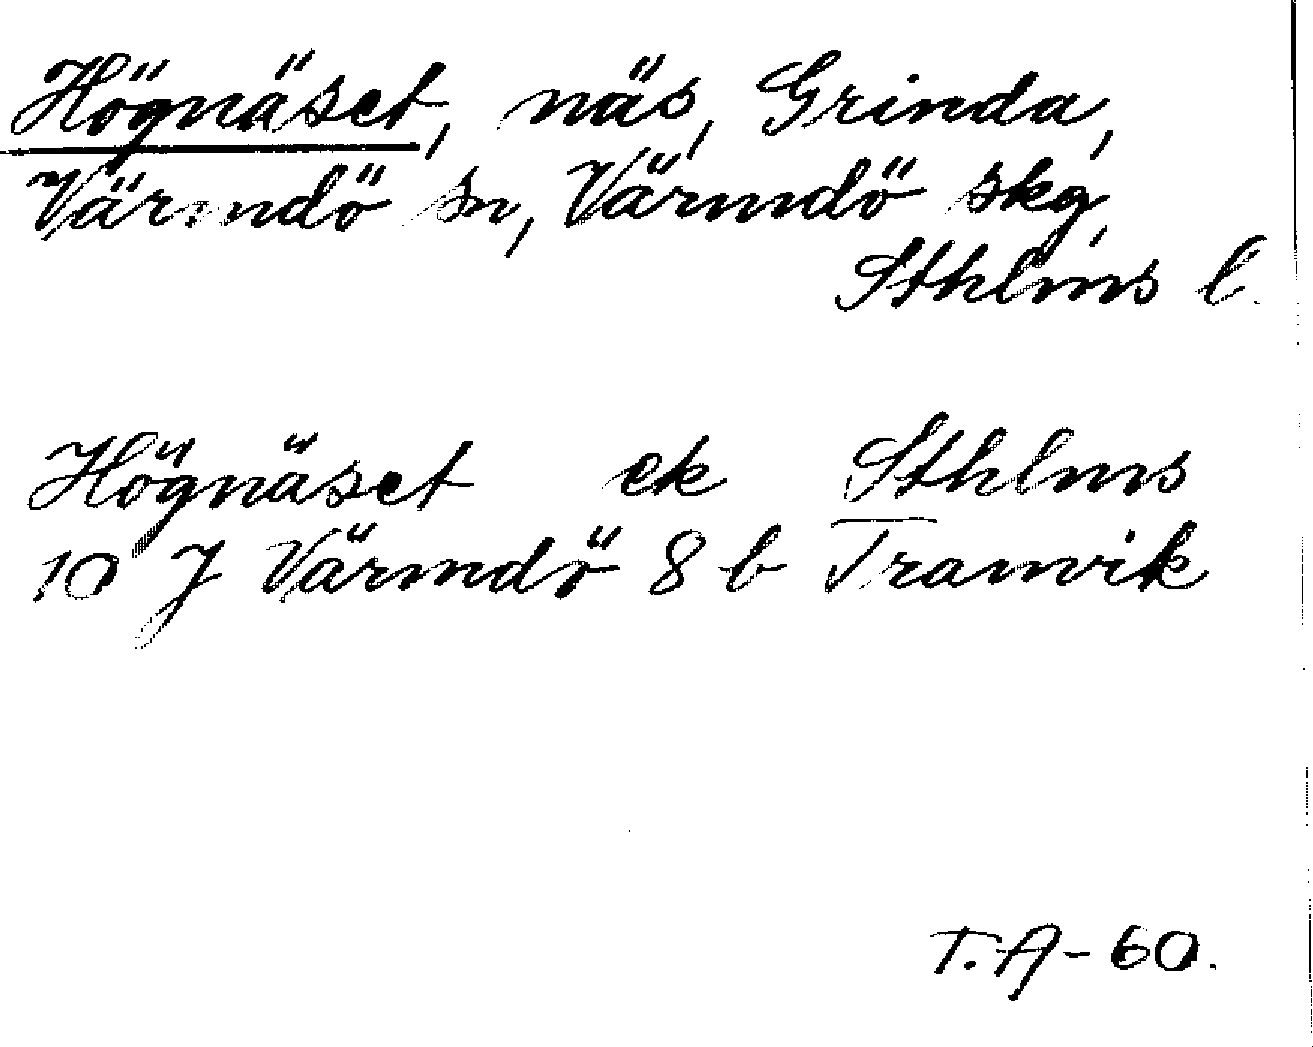 Högnäset, näs, Grinda,
Värmdö sn, Värmdö skg,
Sthlms l.
Högnäset ek Sthlms
10 J Värmdö 8 b Tranvik
T.A-60.